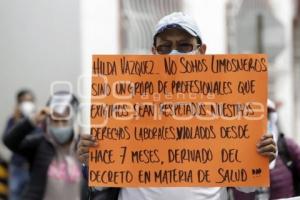 HILDA VAZQUEZ.. NO SOMOS LIMOSNEROS
SINO UN GRUPO DE PROFESIONALES QUE
EXIGIMOS SEAN RESPETADOS NUESTROS
DERECHOS LABORALES, VIOLADOS DESDE
HACE 7 MESES, DERIVADO DEL
DECRETO EN MATERIA DE SALUD